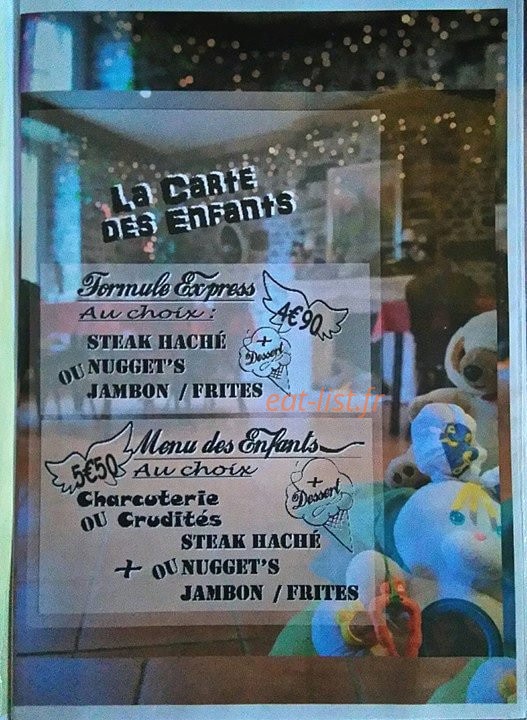 La Carte
des Enfants
Formule Express
4€90
Au choix :
STEAK HACHÉ
OU NUGGET'S
JAMBON / FRITES
+
Dessert
eat-list.fr
5€50
Menu des Enfants
Au choix
Charcuterie
OU Crudités
+
Dessert
STEAK HACHÉ
+ OU NUGGET'S
JAMBON / FRITES